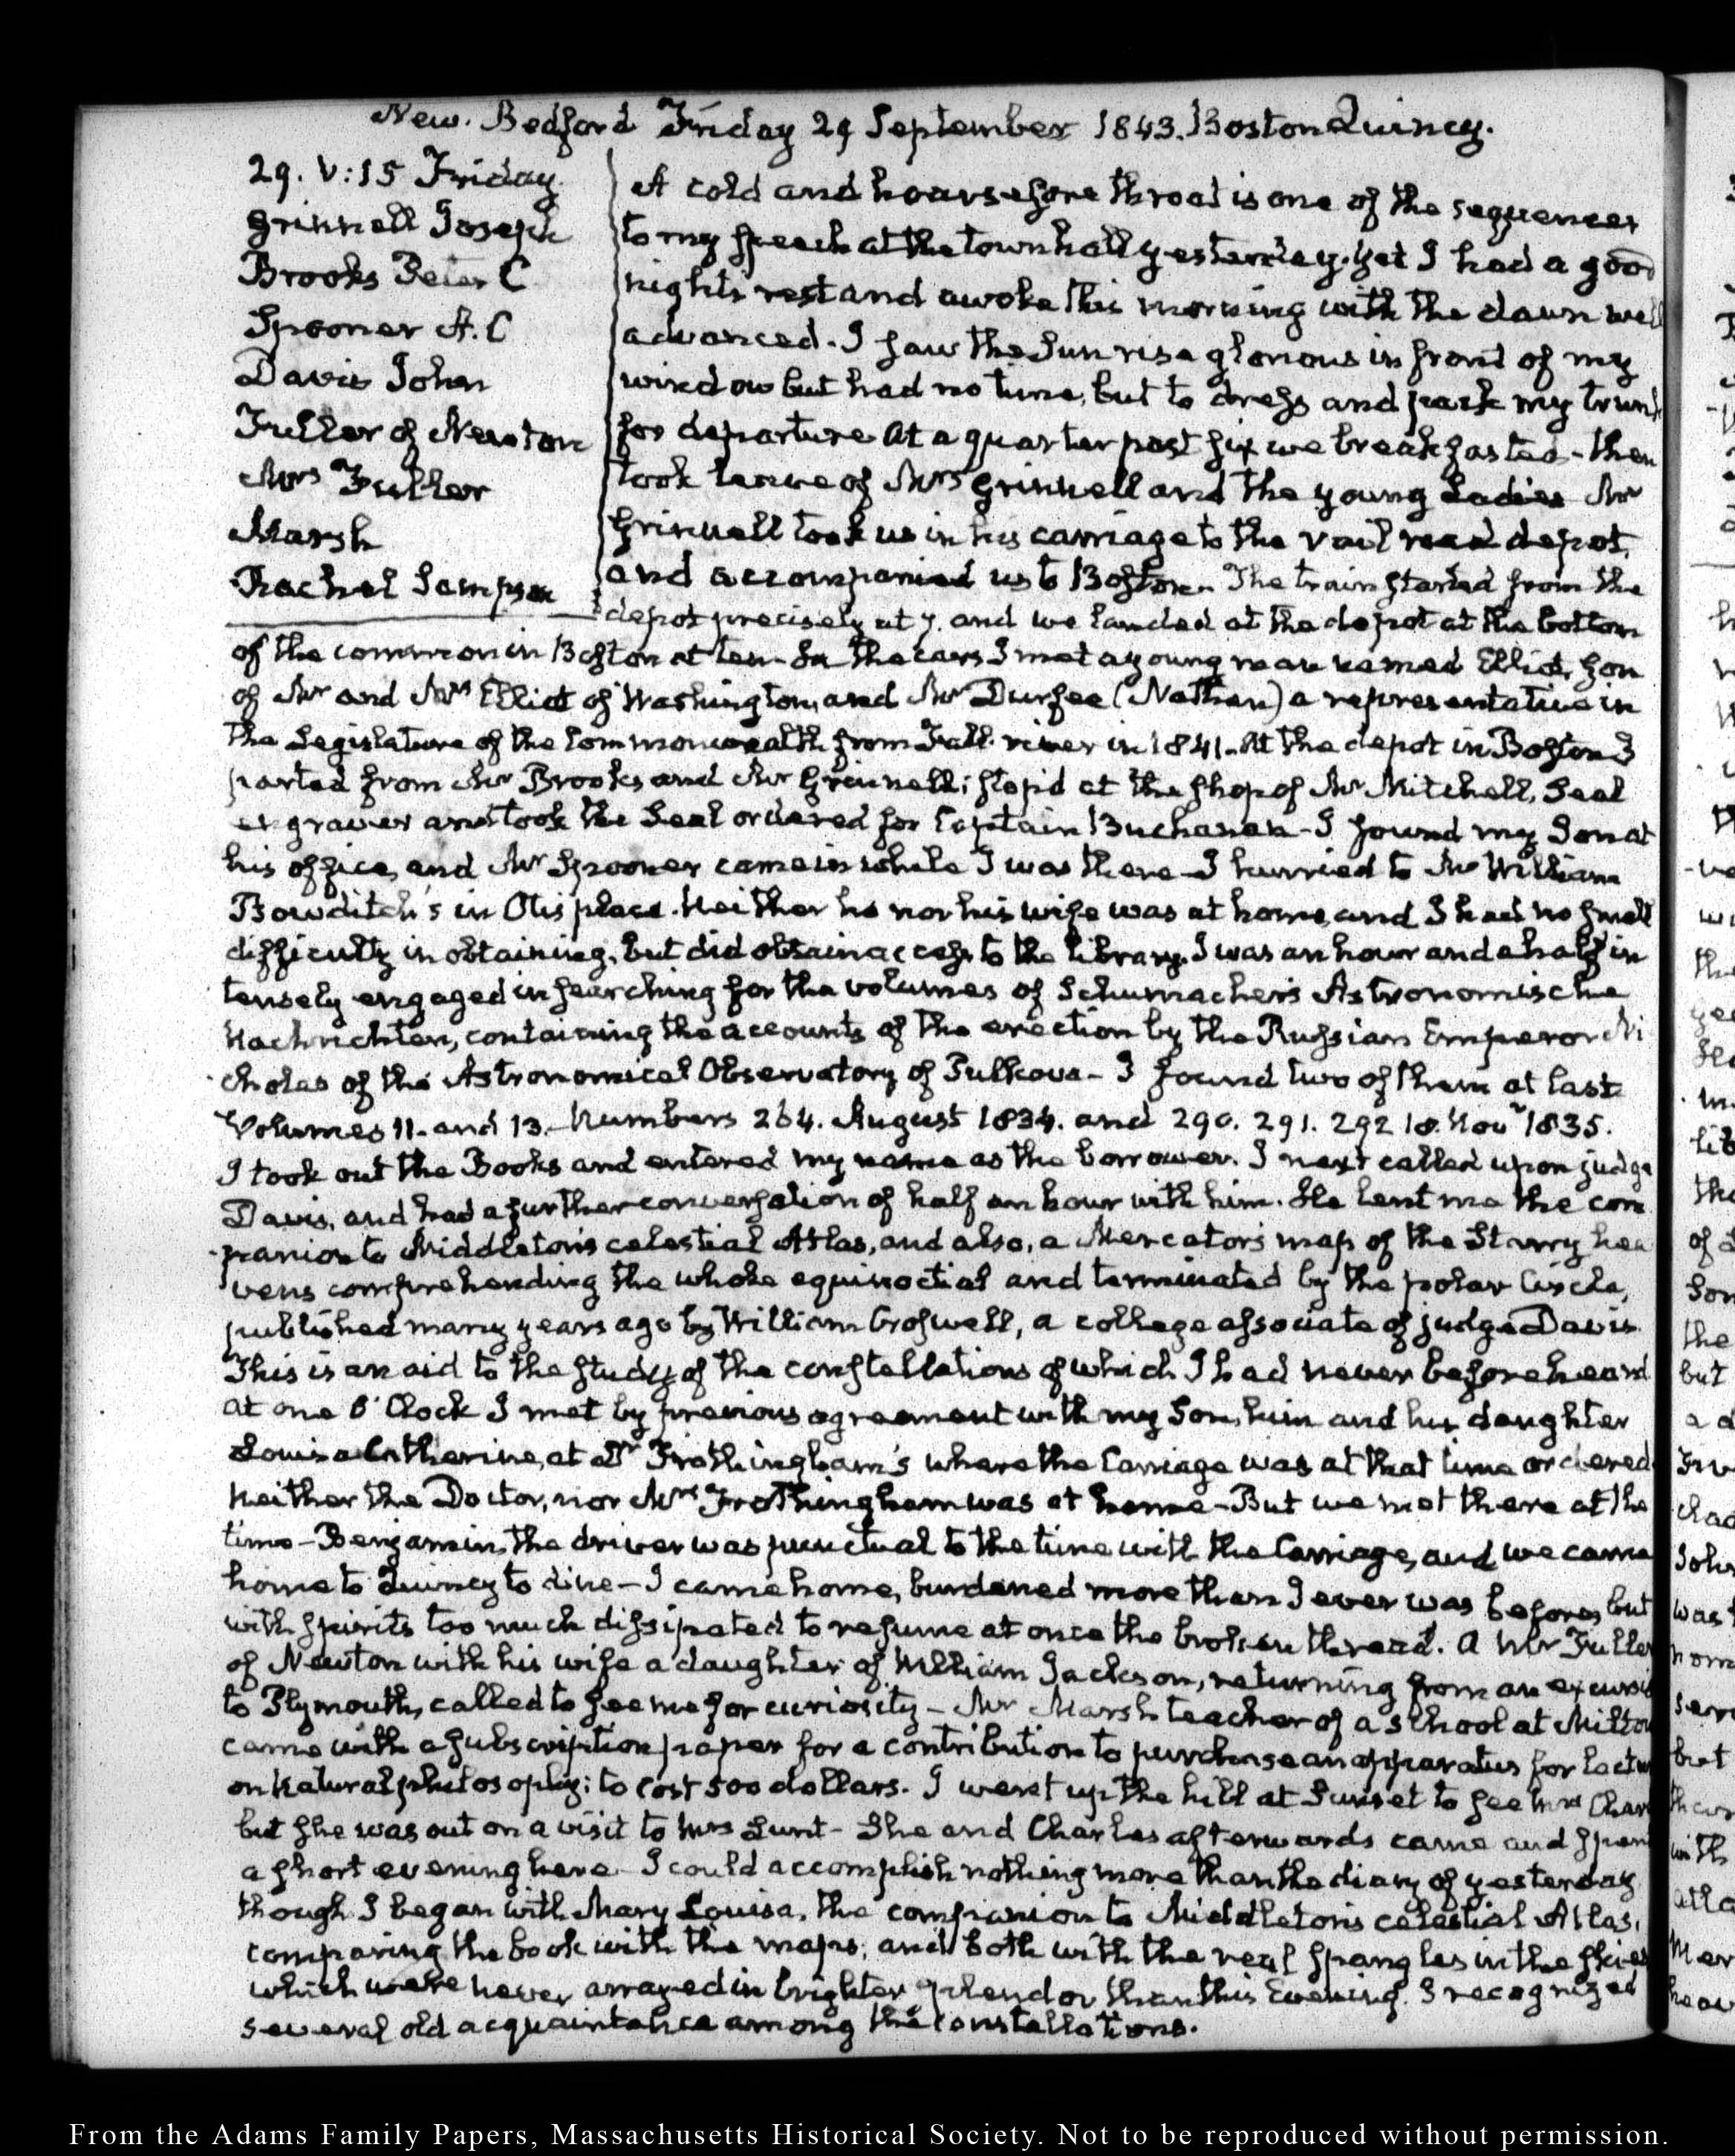 New. Bedford Friday 29 September 1843. Boston Quincy.
29. V:15 Friday
Grinnell Joseph
Brooks Peter C
Spooner A. C
Davis John
Fuller of Newton
Mrs Fuller
Marsh
Rachel Sampson
A cold and hoarse sore throat is one of the sequences
to my speech at the town hall yesterday. yet I had a good
night's rest and awoke this morning with the dawn well
advanced. I saw the Sun rise glorious in front of my
window but had no time, but to dress and pack my trunk
for departure At a quarter past six we breakfasted - then
took leave of Mrs Grinnell and the young Ladies Mr
Grinnell took us in his carriage to the rail road depot,
and accompanied us to Boston. The train started from the
depot precisely at 7. and we landed at the depot at the bottom
of the common in Boston at ten. In the cars I met a young man named Elliot, son
of Mr and Mrs Elliot of Washington, and Mr Durfee (Nathan) a representative in
the Legislature of the Commonwealth from Fall-river in 1841. At the depot in Boston I
parted from Mr Brooks and Mr Grinnell; stop'd at the shop of Mr Mitchell, Seal
engraver and took the Seal ordered for Captain Buchanan - I found my Son at
his office, and Mr Spooner came in while I was there - I hurried to Mr William
Bowditch's in Otis place. Neither he nor his wife was at home, and I had no small
difficulty in obtaining, but did obtain access to the library. I was an hour and a half in
tensely engaged in searching for the volumes of Schumacher's Astronomische
Nachrichten, containing the accounts of the erection by the Russian Emperor Ni
cholas of the Astronomical Observatory of Pulkova - I found two of them at last
Volumes 11. and 13. - Numbers 264. August 1834. and 290. 291. 292 18. Novr 1835.
I took out the Books and entered my name as the borrower. I next called upon judge
Davis, and had a further conversation of half an hour with him. He lent me the com
panion to Middleton's celestial Atlas, and also, a Mercators map of the Starry hea
vens comprehending the whole equinoctial and terminated by the polar Circle,
published many years ago by William Croswell, a college associate of judge Davis
This is an aid to the study of the constellations of which I had never before heard
at one O'Clock I met by previous agreement with my Son, him and his daughter
Louisa Catherine, at Dr Frothingham's where the Carriage was at that time ordered
Neither the Doctor, nor Mrs Frothingham was at home - But we met there at the
time - Benjamin the driver was punctual to the time with the Carriage, and we came
home to Quincy to dine - I came home, burdened more than I ever was before, but
with spirits too much dissipated to resume at once the broken thread. A Mr Fuller
of Newton with his wife a daughter of William Jackson, returning from an excursi
to Plymouth, called to see me for curiosity - Mr Marsh teacher of a school at Milton
came with a subscription paper for a contribution to purchase an apparatus for lectu
on Natural philosophy: to cost 500 dollars. I went up the hill at Sunset to see Mrs Char
but she was out on a visit to Mrs Lunt - She and Charles afterwards came and spent
a short evening here - I could accomplish nothing more than the diary of yesterday
though I began with Mary Louisa, the companion to Middleton's celestial Atlas,
comparing the book with the maps, and both with the real spangles in the skies
which were never arrayed in brighter splendor than this Evening. I recognized
several old acquaintance among the constellations.
From the Adams Family Papers, Massachusetts Historical Society. Not to be reproduced without permission.